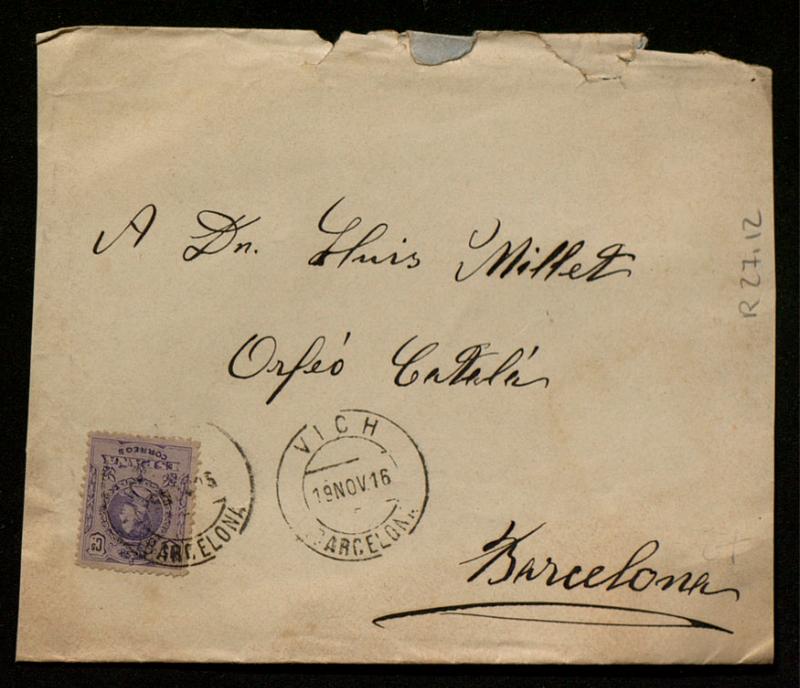 A Dn. Lluis Millet
Orféo Català
Barcelona
VICH
19 NOV.16
BARCELONA
CORREOS
BARCELONA
R 27.12